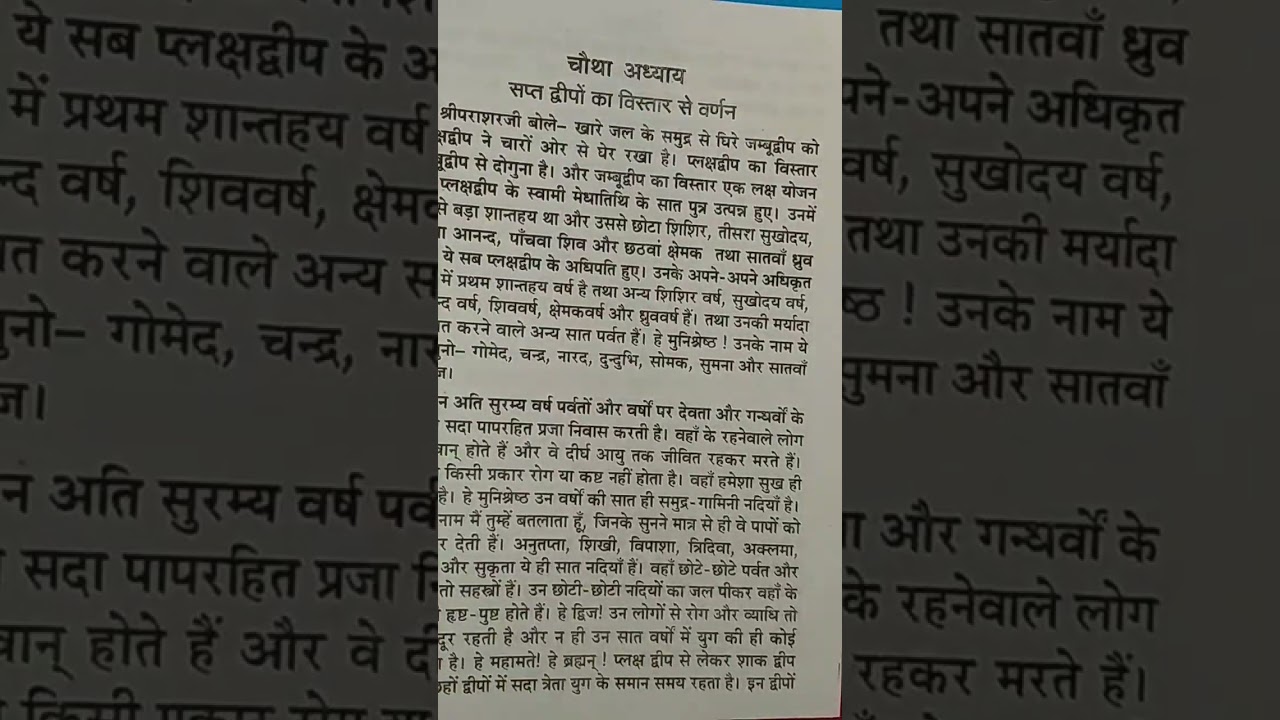 चौथा अध्याय
सप्त द्वीपों का विस्तार से वर्णन
श्रीपराशरजी बोले– खारे जल के समुद्र से घिरे जम्बूद्वीप को
क्षद्वीप ने चारों ओर से घेर रखा है। प्लक्षद्वीप का विस्तार
बूद्वीप से दोगुना है। और जम्बूद्वीप का विस्तार एक लक्ष योजन
प्लक्षद्वीप के स्वामी मेधातिथि के सात पुत्र उत्पन्न हुए। उनमें
से बड़ा शान्तहय था और उससे छोटा शिशिर, तीसरा सुखोदय,
आनन्द, पाँचवा शिव और छठवां क्षेमक तथा सातवाँ ध्रुव
ये सब प्लक्षद्वीप के अधिपति हुए। उनके अपने-अपने अधिकृत
में प्रथम शान्तहय वर्ष है तथा अन्य शिशिर वर्ष, सुखोदय वर्ष,
न्द वर्ष, शिववर्ष, क्षेमकवर्ष और ध्रुववर्ष हैं। तथा उनकी मर्यादा
त करने वाले अन्य सात पर्वत हैं। हे मुनिश्रेष्ठ ! उनके नाम ये
नो– गोमेद, चन्द्र, नारद, दुन्दुभि, सोमक, सुमना और सातवाँ
ज।
न अति सुरम्य वर्ष पर्वतों और वर्षों पर देवता और गन्धर्वों के
सदा पापरहित प्रजा निवास करती है। वहाँ के रहनेवाले लोग
वान् होते हैं और वे दीर्घ आयु तक जीवित रहकर मरते हैं।
किसी प्रकार रोग या कष्ट नहीं होता है। वहाँ हमेशा सुख ही
है। हे मुनिश्रेष्ठ उन वर्षों की सात ही समुद्र-गामिनी नदियाँ है।
नाम मैं तुम्हें बतलाता हूँ, जिनके सुनने मात्र से ही वे पापों को
र देती हैं। अनुतप्ता, शिखी, विपाशा, त्रिदिवा, अक्लमा,
और सुकृता ये ही सात नदियाँ हैं। वहाँ छोटे-छोटे पर्वत और
तो सहस्त्रों हैं। उन छोटी-छोटी नदियों का जल पीकर वहाँ के
हृष्ट-पुष्ट होते हैं। हे द्विज! उन लोगों से रोग और व्याधि तो
दूर रहती है और न ही उन सात वर्षों में युग की ही कोई
है। हे महामते! हे ब्रह्मन् ! प्लक्ष द्वीप से लेकर शाक द्वीप
हों द्वीपों में सदा त्रेता युग के समान समय रहता है। इन द्वीपों